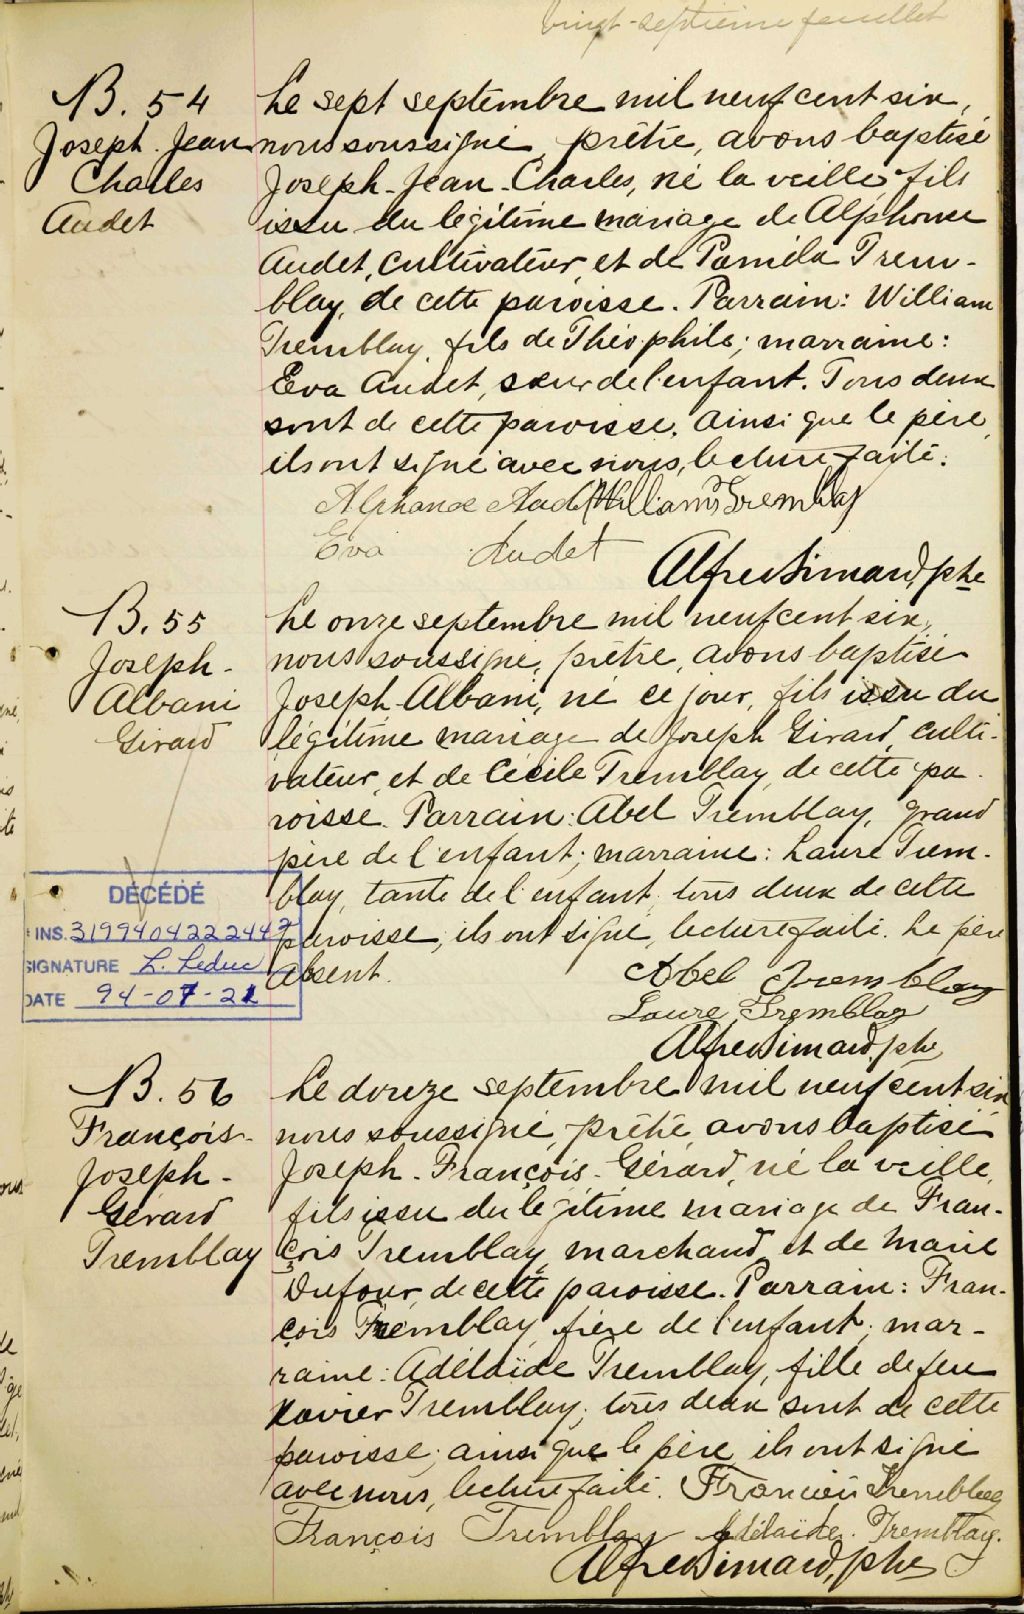 vingt-septième feuillet
B. 54
Joseph. Jean
Charles
Audet
Le sept septembre mil neuf cent six,
nous soussigné, prêtre, avons baptisé
Joseph-Jean-Charles, né la veille, fils
issu du légitime mariage de Alphonse
Audet, cultivateur, et de Paméla Trem-
blay, de cette paroisse. Parrain: William
Tremblay, fils de Théophile; marraine:
Eva Audet, sœur de l'enfant. Tous deux
sont de cette paroisse. Ainsi que le père,
ils ont signé avec nous, lecture faite.
Alphonse Audet William Tremblay
Eva Audet
Alfred Simard, ptre
B. 55
Joseph-
Albani
Girard
Le onze septembre mil neuf cent six,
nous soussigné, prêtre, avons baptisé
Joseph Albani, né ce jour, fils issu du
légitime mariage de Joseph Girard, culti-
vateur, et de Cécile Tremblay, de cette pa-
roisse. Parrain: Abel Tremblay, grand
père de l'enfant; marraine: Laure Trem-
blay, tante de l'enfant, tous deux de cette
paroisse, ils ont signé, lecture faite. Le père
absent.
Abel Tremblay
Laure Tremblay
Alfred Simard, ptre
DÉCÉDÉ
INS. 3199404222442
SIGNATURE L. Leduc
DATE 94-07-21
B. 56
François-
Joseph-
Gérard
Tremblay
Le douze septembre mil neuf cent six
nous soussigné, prêtre, avons baptisé
Joseph-François-Gérard, né la veille,
fils issu du légitime mariage de Fran-
çois Tremblay, marchand, et de Marie
Dufour, de cette paroisse. Parrain: Fran-
çois Tremblay, frère de l'enfant; mar-
raine: Adélaïde Tremblay, fille de feu
Xavier Tremblay; tous deux sont de cette
paroisse; ainsi que le père, ils ont signé
avec nous, lecture faite. François Tremblay
François Tremblay Adélaïde. Tremblay.
Alfred Simard, ptre